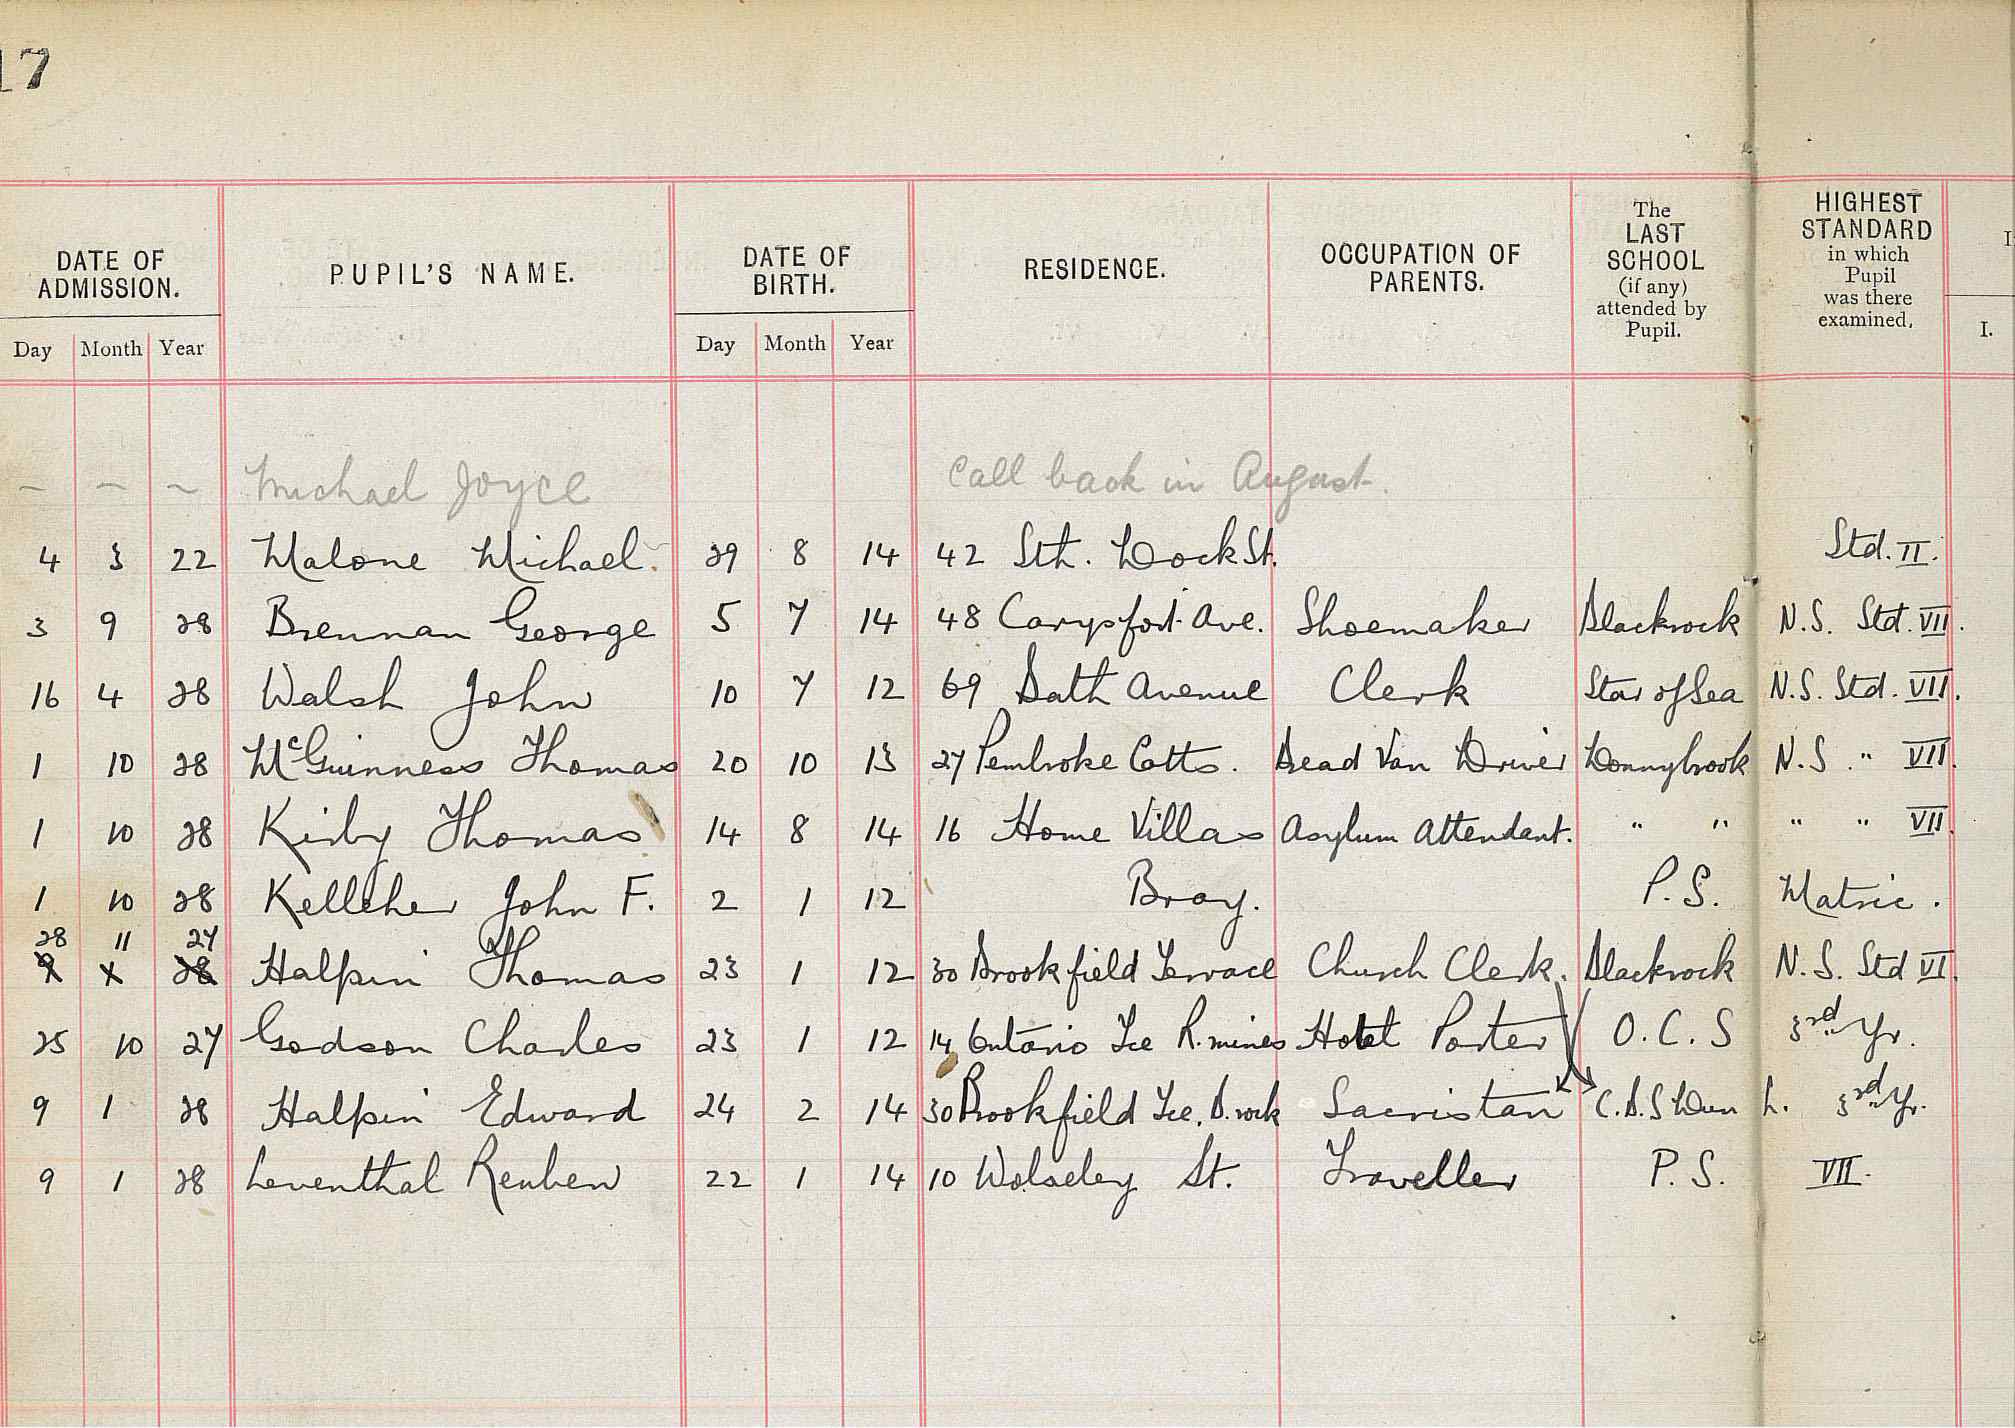 17
DATE OF ADMISSION. PUPIL'S NAME. DATE OF BIRTH. RESIDENCE. OCCUPATION OF PARENTS. The LAST SCHOOL (if any) attended by Pupil. HIGHEST STANDARD in which Pupil was there examined.
Day Month Year Day Month Year I.
~ ~ ~ Michael Joyce Call back in August.
4 3 22 Malone Michael. 29 8 14 42 Sth. Dock St. Std. II.
3 9 28 Brennan George 5 7 14 48 Carysfort Ave. Shoemaker Blackrock N.S. Std. VII.
16 4 28 Walsh John 10 7 12 69 Bath Avenue Clerk Star of Sea N.S. Std. VII.
1 10 28 McGuinness Thomas 20 10 13 27 Pembroke Cotts. Bread Van Driver Donnybrook N.S. " VII.
1 10 28 Kirby Thomas 14 8 14 16 Home Villas Asylum Attendant. " " " " VII.
1 10 28 Kelleher John F. 2 1 12 Bray. P.S. Matric.
28 11 27
9 x 28 Halpin Thomas 23 1 12 30 Brookfield Terrace Church Clerk. Blackrock N.S. Std VI.
25 10 27 Godson Charles 23 1 12 14 Ontario Tce R.mines Hotel Porter O.C.S 3rd Yr.
9 1 28 Halpin Edward 24 2 14 30 Brookfield Tce. B.rock Sacristan C.B.S Dun L. 3rd Yr.
9 1 28 Leventhal Reuben 22 1 14 10 Wolseley St. Traveller P.S. VII.